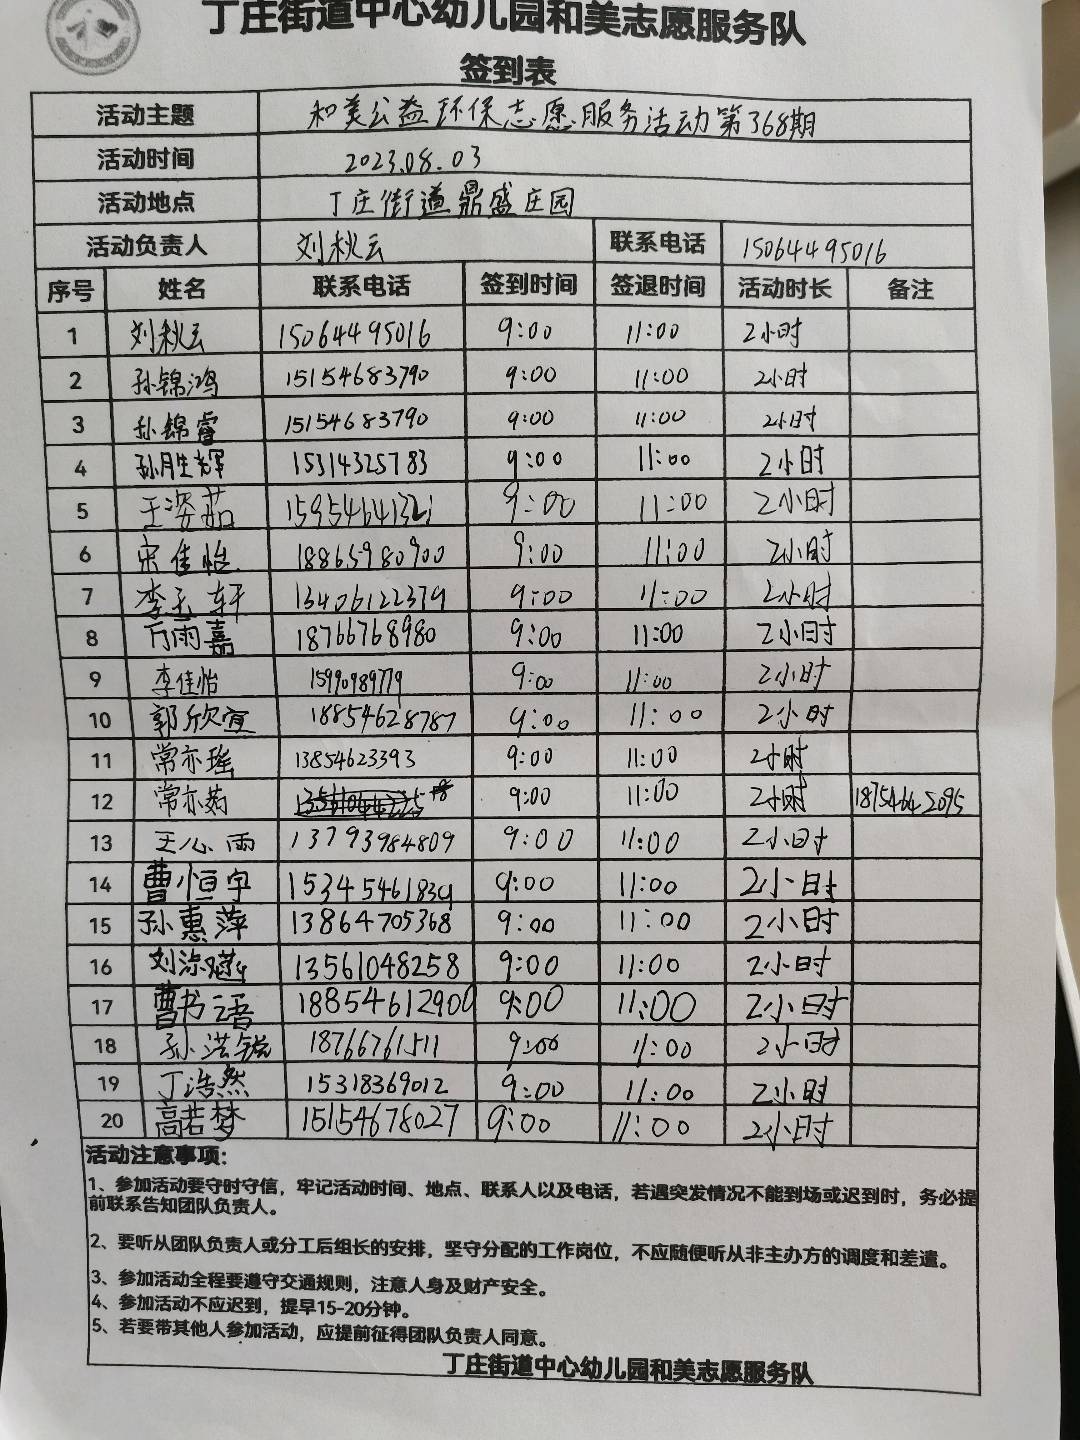 丁庄街道中心幼儿园和美志愿服务队
签到表
活动主题 和美公益环保志愿服务活动第368期
活动时间 2023.08.03
活动地点 丁庄街道鼎盛庄园
活动负责人 刘秋云 联系电话 15064495016
序号 姓名 联系电话 签到时间 签退时间 活动时长 备注
1 刘秋云 15064495016 9:00 11:00 2小时
2 孙锦鸿 15154683790 9:00 11:00 2小时
3 孙锦睿 15154683790 9:00 11:00 2小时
4 孙胜辉 15314325783 9:00 11:00 2小时
5 王姿茹 9:00 11:00 2小时
6 宋佳怡 18865980900 9:00 11:00 2小时
7 李玉轩 13406122379 9:00 11:00 2小时
8 万雨嘉 18766768980 9:00 11:00 2小时
9 李佳怡 15990989779 9:00 11:00 2小时
10 郭欣宜 18854628787 9:00 11:00 2小时
11 常亦瑶 13854623393 9:00 11:00 2小时
12 常亦菊 9:00 11:00 2小时 18754642095
13 王心雨 13793984809 9:00 11:00 2小时
14 曹恒宇 15345461839 9:00 11:00 2小时
15 孙惠萍 13864705368 9:00 11:00 2小时
16 刘淑 13561048258 9:00 11:00 2小时
17 曹书语 18854612900 9:00 11:00 2小时
18 孙浩锐 18766761511 9:00 11:00 2小时
19 丁浩然 15318369012 9:00 11:00 2小时
20 高若梦 15154678027 9:00 11:00 2小时
活动注意事项：
1、参加活动要守时守信，牢记活动时间、地点、联系人以及电话，若遇突发情况不能到场或迟到时，务必提
前联系告知团队负责人。
2、要听从团队负责人或分工后组长的安排，坚守分配的工作岗位，不应随便听从非主办方的调度和差遣。
3、参加活动全程要遵守交通规则，注意人身及财产安全。
4、参加活动不应迟到，提早15-20分钟。
5、若要带其他人参加活动，应提前征得团队负责人同意。
丁庄街道中心幼儿园和美志愿服务队